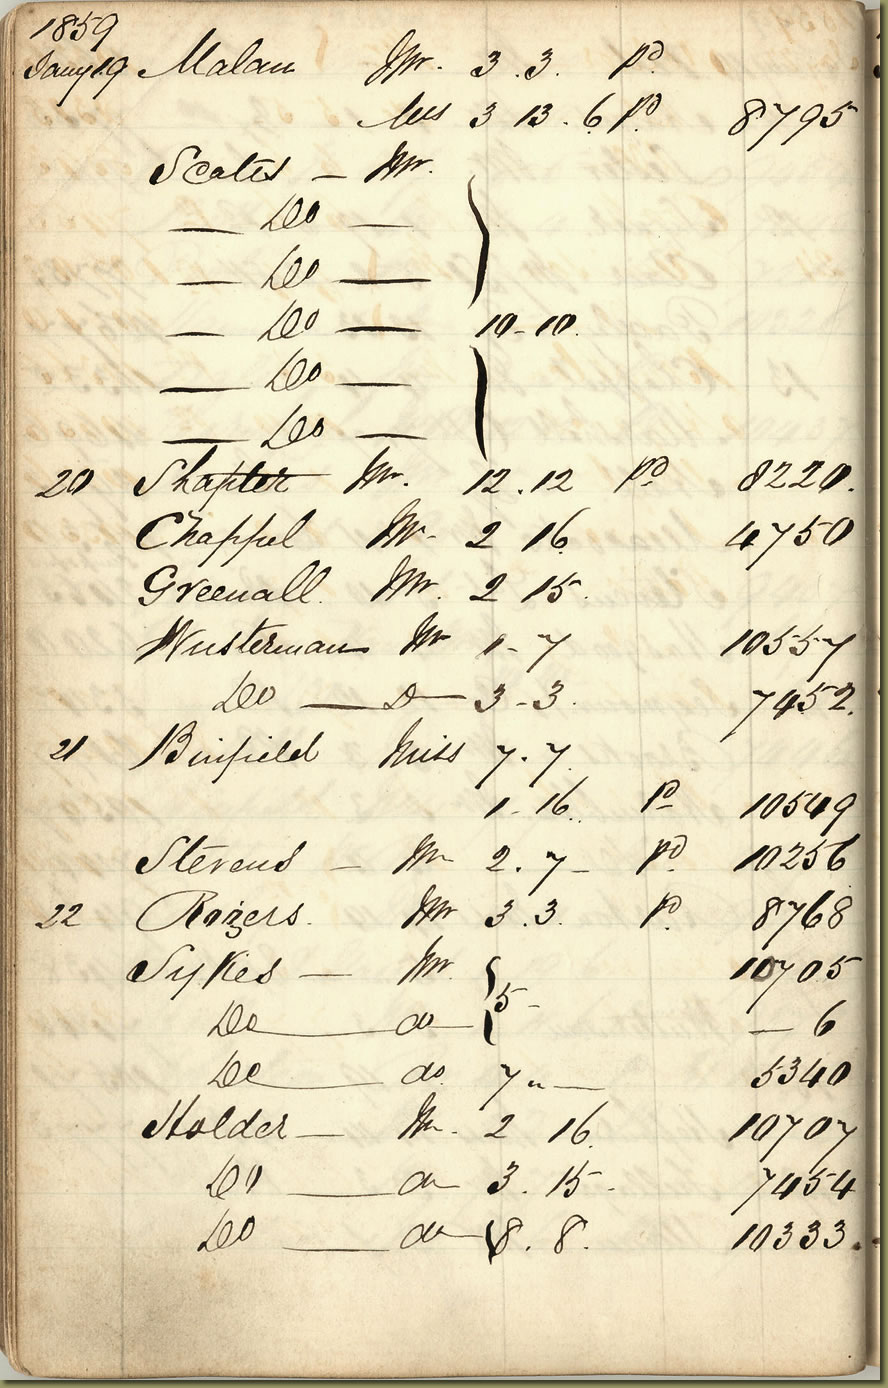 1859
Jany 19 Malan Mr. 3 . 3. Pd
Mrs 3 13 . 6 Pd 8795
Scates — Mr.
— Do —
— Do —
— Do — 10 - 10.
— Do —
— Do —
20 Shapter Mr. 12 . 12 Pd 8220.
Chappel Mr. 2 16. 4750
Greenall. Mr. 2 15.
Wusterman Mr 1 - 7 10557
Do — Do — 3 - 3. 7452.
21 Binfield Miss 7 . 7.
1 - 16. Pd 10549
Stevens — Mr 2 . 7 - Pd 10256
22 Rogers. Mr 3 . 3. Pd 8768
Sykes — Mr 5 - 10705
Do — do — — 6
Do — do. 7 " — 5340
Holder — Mr. 2 16. 10707
Do — do 3 . 15 - 7454
Do — do — 8 . 8. 10333.